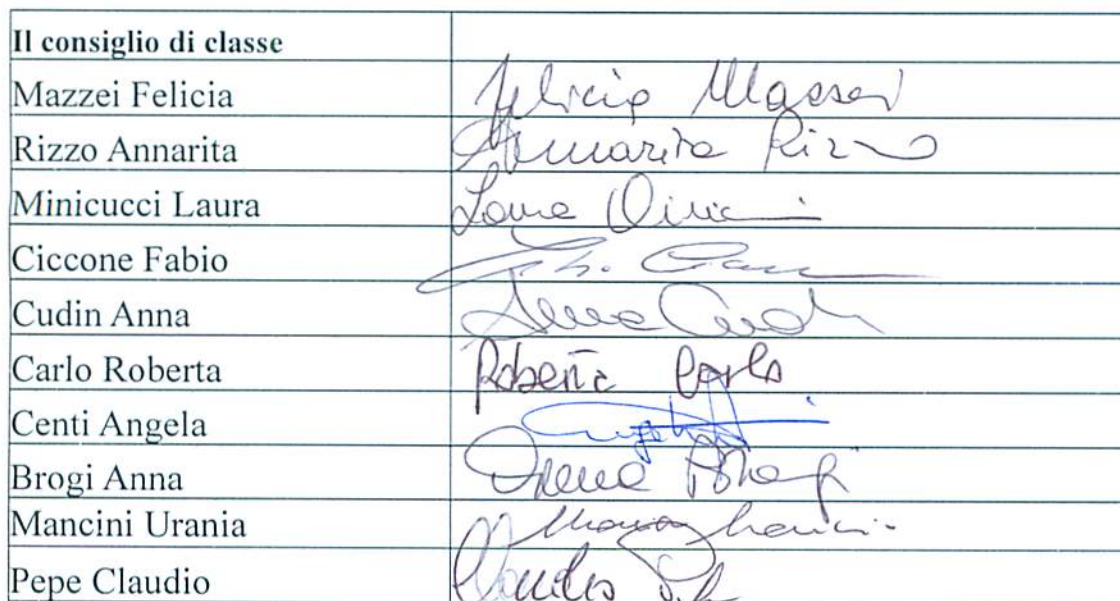 Il consiglio di classe
Mazzei Felicia Felicia Mazzei
Rizzo Annarita Annarita Rizzo
Minicucci Laura Laura
Ciccone Fabio
Cudin Anna Anna Cudin
Carlo Roberta Roberta Carlo
Centi Angela
Brogi Anna Anna Brogi
Mancini Urania
Pepe Claudio Claudio